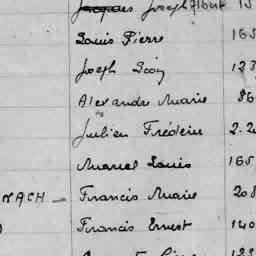 Jacques Joseph Albert 15
Louis Pierre 165
Joseph Léon 123
Alexandre Marie 86
Julien Frédéric 2.2
Marcel Louis 165
NACH - Francis Marie 208
Francis Ernest 140